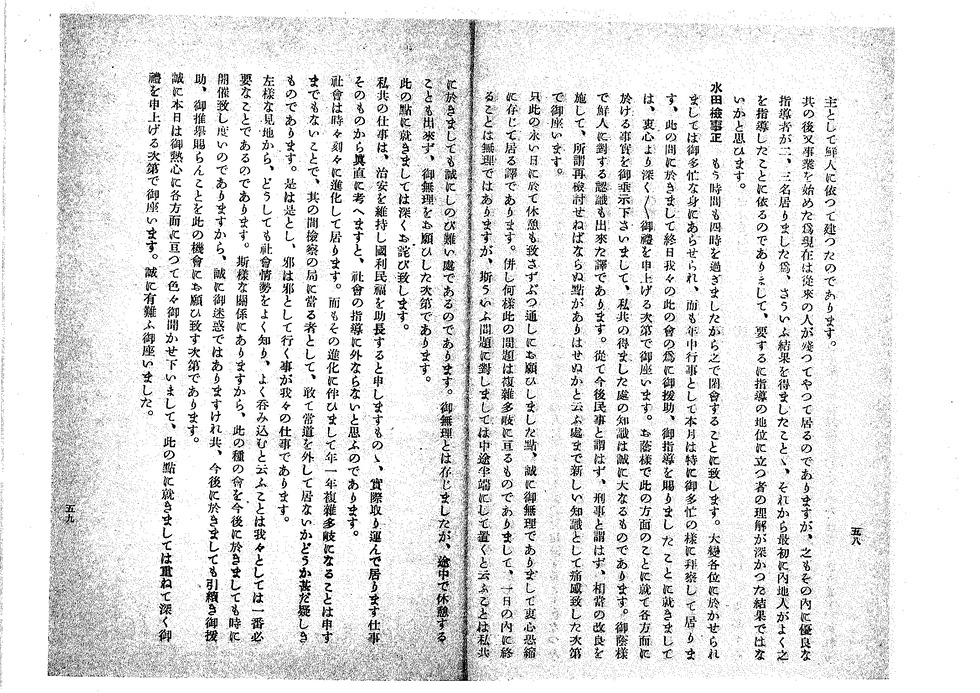 主として鮮人に依つて建つたのであります。
其の後又事業を始めた爲現在は從來の人が殘つてやつて居るのでありますが、之もその內に優良な
指導者が二、三名居りました爲、さういふ結果を得ましたことゝ、それから最初に內地人がよく之
を指導したことに依るのでありまして、要するに指導の地位に立つ者の理解が深かつた結果ではな
いかと思ひます。
水田檢事正　もう時間も四時を過ぎましたから之で閉會することに致します。大變各位に於かせられ
ましては御多忙な身にあらせられ、而も年中行事として本月は特に御多忙の樣に拜察して居りま
す、此の間に於きまして終日我々の此の會の爲に御援助、御指導を賜りましたことに就きまして
は、衷心より深く〱御禮を申上げる次第で御座います。お蔭樣で此の方面のことに就て各方面に
於ける事實を御垂示下さいまして、私共の得ました處の知識は誠に大なるものであります。御蔭樣
で鮮人に對する認識も出來た譯であります。從て今後民事と謂はず、刑事と謂はず、相當の改良を
施して、所謂再檢討せねばならぬ點がありはせぬかと云ふ處まで新しい知識として痛感致した次第
で御座います。
只此の永い日に於て休憩も致さずぶつ通しにお願ひしました點、誠に御無理でありまして衷心恐縮
に存じて居る譯であります。併し何樣此の問題は複雜多岐に亘るものでありまして、一日の內に終
ることは無理ではありますが、斯ういふ問題に對しましては中途半端にして置くと云ふことは私共
五八
に於きましても誠にしのび難い處であるのであります。御無理とは存じましたが、途中で休憩する
ことも出來ず、御無理をお願ひした次第であります。
此の點に就きましては深くお詫び致します。
私共の仕事は、治安を維持し國利民福を助長すると申しますものゝ、實際取り運んで居ります仕事
そのものから眞直に考へますと、社會の指導に外ならないと思ふのであります。
社會は時々刻々に進化して居ります。而もその進化に伴ひまして年一年複雜多岐になることは申す
までもないことで、其の間檢察の局に當る者として、敢て常道を外して居ないかどうか甚だ疑しき
ものであります。是は是とし、邪は邪として行く事が我々の仕事であります。
左樣な見地から、どうしても社會情勢をよく知り、よく呑み込むと云ふことは我々としては一番必
要なことであるのであります。斯樣な關係にありますから、此の種の會を今後に於きましても時に
開催致し度いのでありますから、誠に御迷惑ではありますけれ共、今後に於きましても引續き御援
助、御推擧賜らんことを此の機會にお願ひ致す次第であります。
誠に本日は御熱心に各方面に亘つて色々御聞かせ下いまして、此の點に就きましては重ねて深く御
禮を申上げる次第で御座います。誠に有難ふ御座いました。
五九